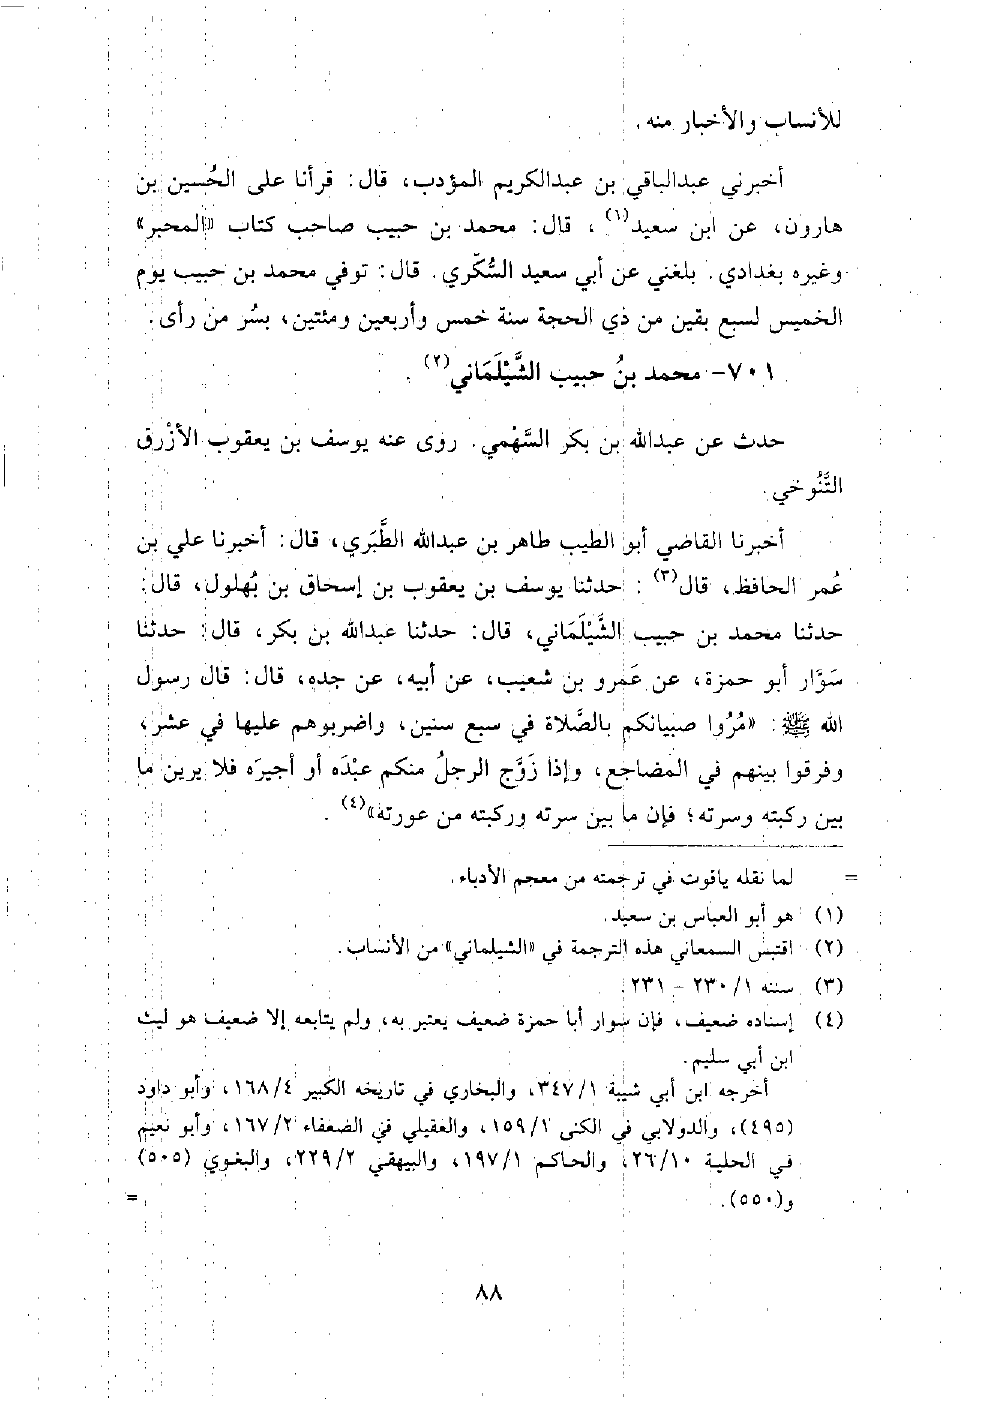 للأنساب والأخبار منه.
أخبرني عبدالباقي بن عبدالكريم المؤدب، قال: قرأنا على الحُسين بن
هارون، عن ابن سعيد(١)، قال: محمد بن حبيب صاحب كتاب «المحبر»
وغيره بغدادي. بلغني عن أبي سعيد السُّكّري. قال: توفي محمد بن حبيب يوم
الخميس لسبع بقين من ذي الحجة سنة خمس وأربعين ومئتين، بسُر من رأى.
٧٠١- محمد بنُ حبيب الشَّيْلَمَاني(٢).
حدث عن عبدالله بن بكر السَّهْمي. روى عنه يوسف بن يعقوب الأزْرق
التَّنُوخي.
أخبرنا القاضي أبو الطيب طاهر بن عبدالله الطَّبَري، قال: أخبرنا علي بن
عُمر الحافظ، قال(٣): حدثنا يوسف بن يعقوب بن إسحاق بن بُهلول، قال:
حدثنا محمد بن حبيب الشَّيْلَمَاني، قال: حدثنا عبدالله بن بكر، قال: حدثنا
سَوَّار أبو حمزة، عن عَمرو بن شعيب، عن أبيه، عن جده، قال: قال رسول
الله ﷺ: «مُرُوا صبيانكم بالصَّلاة في سبع سنين، واضربوهم عليها في عشر،
وفرقوا بينهم في المضاجع، وإذا زَوَّج الرجلُ منكم عبْدَه أو أجيرَه فلا يرين ما
بين ركبته وسرته؛ فإن ما بين سرته وركبته من عورته»(٤).
= لما نقله ياقوت في ترجمته من معجم الأدباء.
(١) هو أبو العباس بن سعيد.
(٢) اقتبس السمعاني هذه الترجمة في «الشيلماني» من الأنساب.
(٣) سننه ١/ ٢٣٠ - ٢٣١.
(٤) إسناده ضعيف، فإن سوار أبا حمزة ضعيف يعتبر به، ولم يتابعه إلا ضعيف هو ليث
ابن أبي سليم.
أخرجه ابن أبي شيبة ١/ ٣٤٧، والبخاري في تاريخه الكبير ٤/ ١٦٨، وأبو داود
(٤٩٥)، والدولابي في الكنى ١/ ١٥٩، والعقيلي في الضعفاء ٢/ ١٦٧، وأبو نعيم
في الحلية ١٠/ ٢٦، والحاكم ١/ ١٩٧، والبيهقي ٢/ ٢٢٩، والبغوي (٥٠٥)
و(٥٥٠). =
٨٨